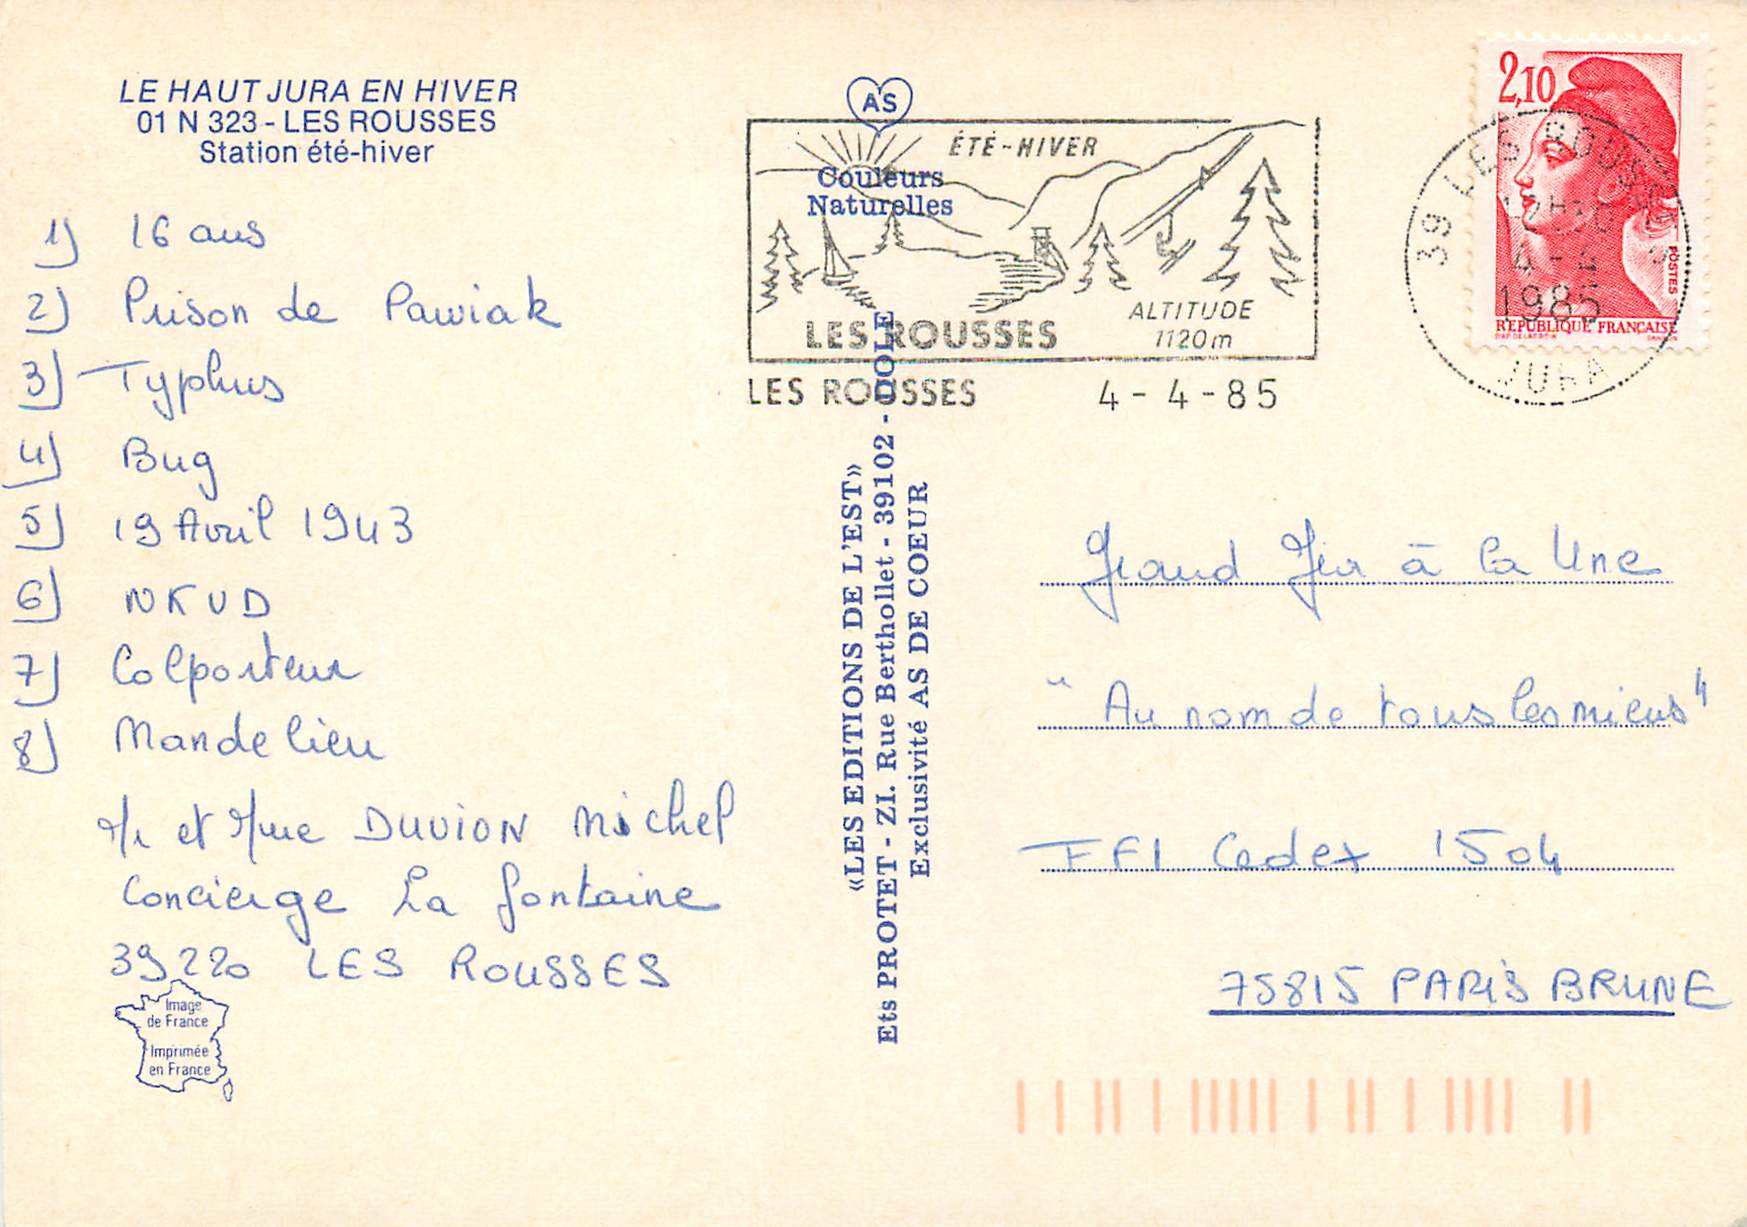 LE HAUT JURA EN HIVER
01 N 323 - LES ROUSSES
Station été-hiver
1) 16 ans
2) Prison de Pawiak
3) Typhus
4) Bug
5) 19 Avril 1943
6) NKVD
7) Colporteur
8) Mandelieu
Mr et Mme DUVION Michel
Concierge La Fontaine
39220 LES ROUSSES
Image
de France
Imprimée
en France
AS
Couleurs
Naturelles
«LES EDITIONS DE L'EST»
Ets PROTET - ZI. Rue Berthollet - 39102 - DOLE
Exclusivité AS DE COEUR
ÉTÉ-HIVER
LES ROUSSES
ALTITUDE
1120m
LES ROUSSES 4-4-85
2,10
POSTES
RÉPUBLIQUE FRANÇAISE
39 LES ROUSSES
4-4
1985
JURA
Grand Jeu à la Une
"Au nom de tous les miens"
TF1 Cedex 1504
75815 PARIS BRUNE